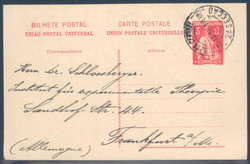 BILHETE POSTAL CARTE POSTALE
UNIÃO POSTAL UNIVERSAL UNION POSTALE UNIVERSELLE
3
CORREIO
Herrn Dr. Schlossberger
Institut für experimentelle Therapie
Sandhof Str. 44
Frankfurt a/M.
(Allemagne)